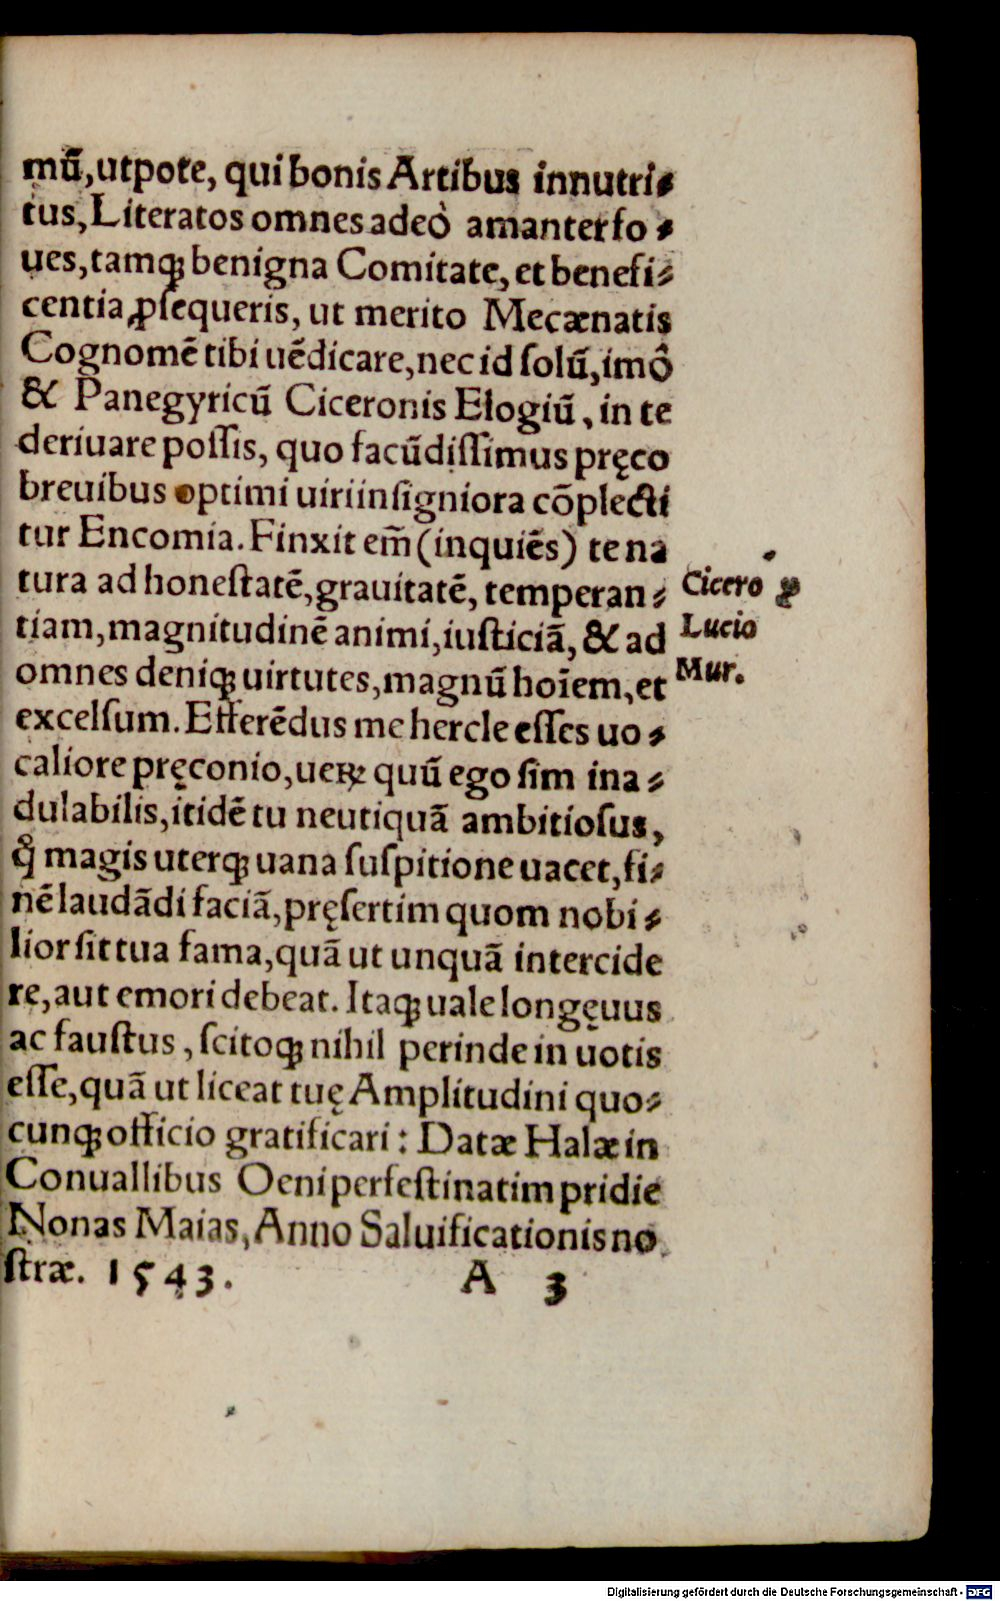 mũ, utpote, qui bonis Artibus innutri⸗
tus, Literatos omnes adeò amanter fo⸗
ues, tamqꝫ benigna Comitate, et benefi⸗
centia ꝓſequeris, ut merito Mecænatis
Cognomẽ tibi uẽdicare, nec id ſolũ, imô
& Panegyricũ Ciceronis Elogiũ, in te
deriuare poſſis, quo facũdiſſimus pręco
breuibus optimi uiri inſigniora cõplecti
tur Encomia. Finxit em̃ (inquiẽs) te na
tura ad honeſtatẽ, grauitatẽ, temperan⸗
tiam, magnitudinẽ animi, iuſticiã, & ad
omnes deniqꝫ uirtutes, magnũ hoĩem, et
excelſum. Efferẽdus me hercle eſſes uo⸗
caliore pręconio, ueꝝ quũ ego ſim ina⸗
dulabilis, itidẽ tu neutiquã ambitioſus,
ꝙ̊ magis uterqꝫ uana ſuſpitione uacet, fi⸗
nẽ laudãdi faciã, pręſertim quom nobi⸗
lior ſit tua fama, quã ut unquã intercide
re, aut emori debeat. Itaqꝫ uale longęuus
ac fauſtus, ſcitoqꝫ nihil perinde in uotis
eſſe, quã ut liceat tuę Amplitudini quo⸗
cunqꝫ officio gratificari: Datæ Halæ in
Conuallibus Oeni perfeſtinatim pridie
Nonas Maias, Anno Saluificationis no
ſtræ. 1543.
A 3
Cicero ꝓ
Lucio
Mur.
Digitalisierung gefördert durch die Deutsche Forschungsgemeinschaft - DFG